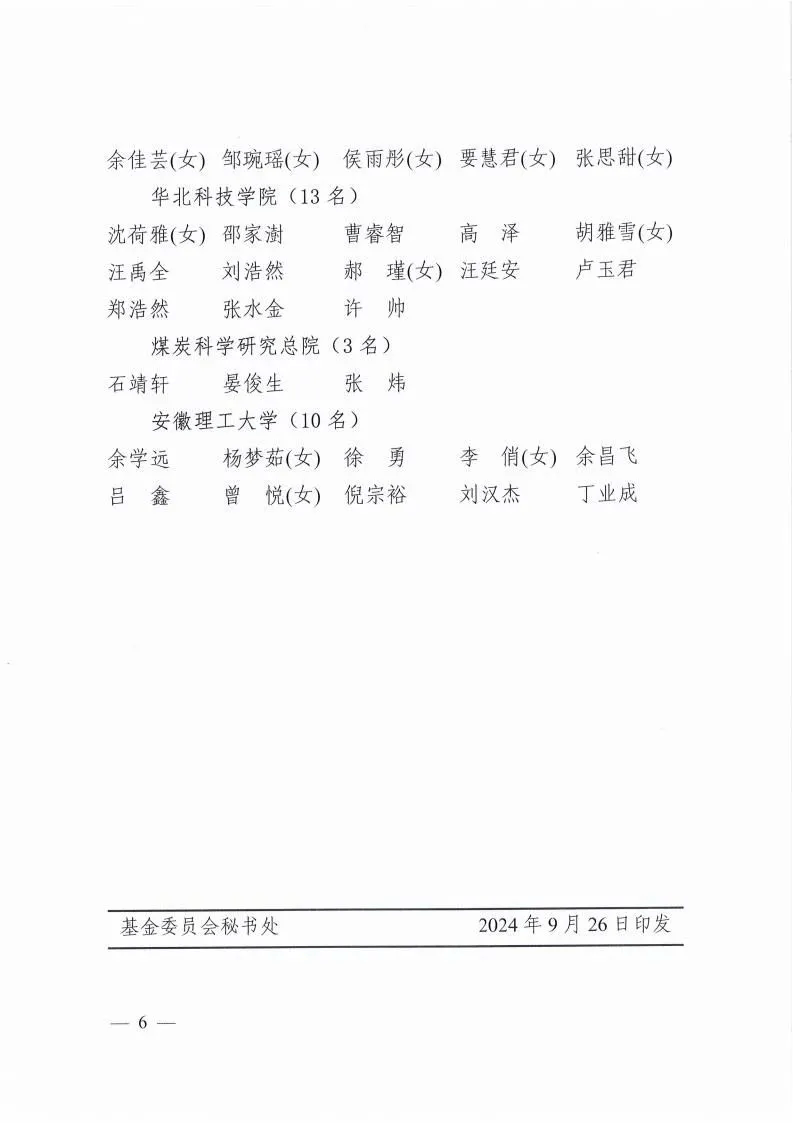 余佳芸(女) 邹琬瑶(女) 侯雨彤(女) 要慧君(女) 张思甜(女)
华北科技学院（13 名）
沈荷雅(女) 邵家澍 曹睿智 高 泽 胡雅雪(女)
汪禹全 刘浩然 郝 瑾(女) 汪廷安 卢玉君
郑浩然 张水金 许 帅
煤炭科学研究总院（3 名）
石靖轩 晏俊生 张 炜
安徽理工大学（10 名）
余学远 杨梦茹(女) 徐 勇 李 俏(女) 余昌飞
吕 鑫 曾 悦(女) 倪宗裕 刘汉杰 丁业成
基金委员会秘书处 2024 年 9 月 26 日印发
— 6 —